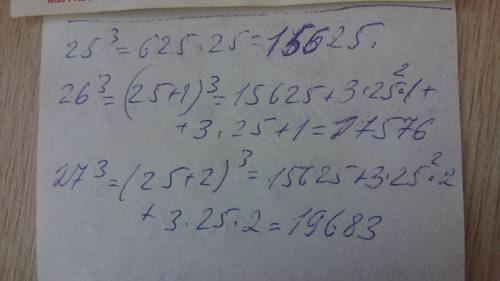 25³=625·25=15625.
26³=(25+1)³=15625+3·25²·1+
+3·25+1=17576
27³=(25+2)³=15625+3·25²·2
+3·25·2=19683